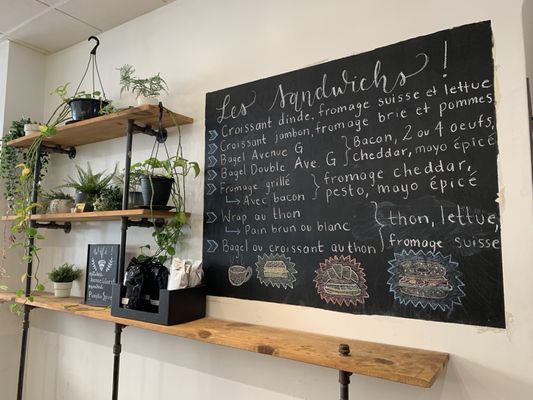 Les Sandwichs!
Croissant dinde, fromage suisse et lettue
Croissant jambon, fromage brie et pommes
Bagel Avenue G
Bagel Double Ave. G
Bacon, 2 ou 4 oeufs,
cheddar, mayo épicé
Fromage grillé
↳ Avec bacon
fromage cheddar,
pesto, mayo épicé
Wrap au thon
↳ Pain brun ou blanc
Bagel ou croissant au thon
thon, lettue,
fromage suisse